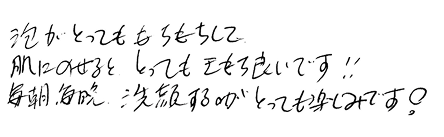 泡がとってももちもちして
肌にのせるととっても気もち良いです!!
毎朝毎晩、洗顔するのがとっても楽しみです!